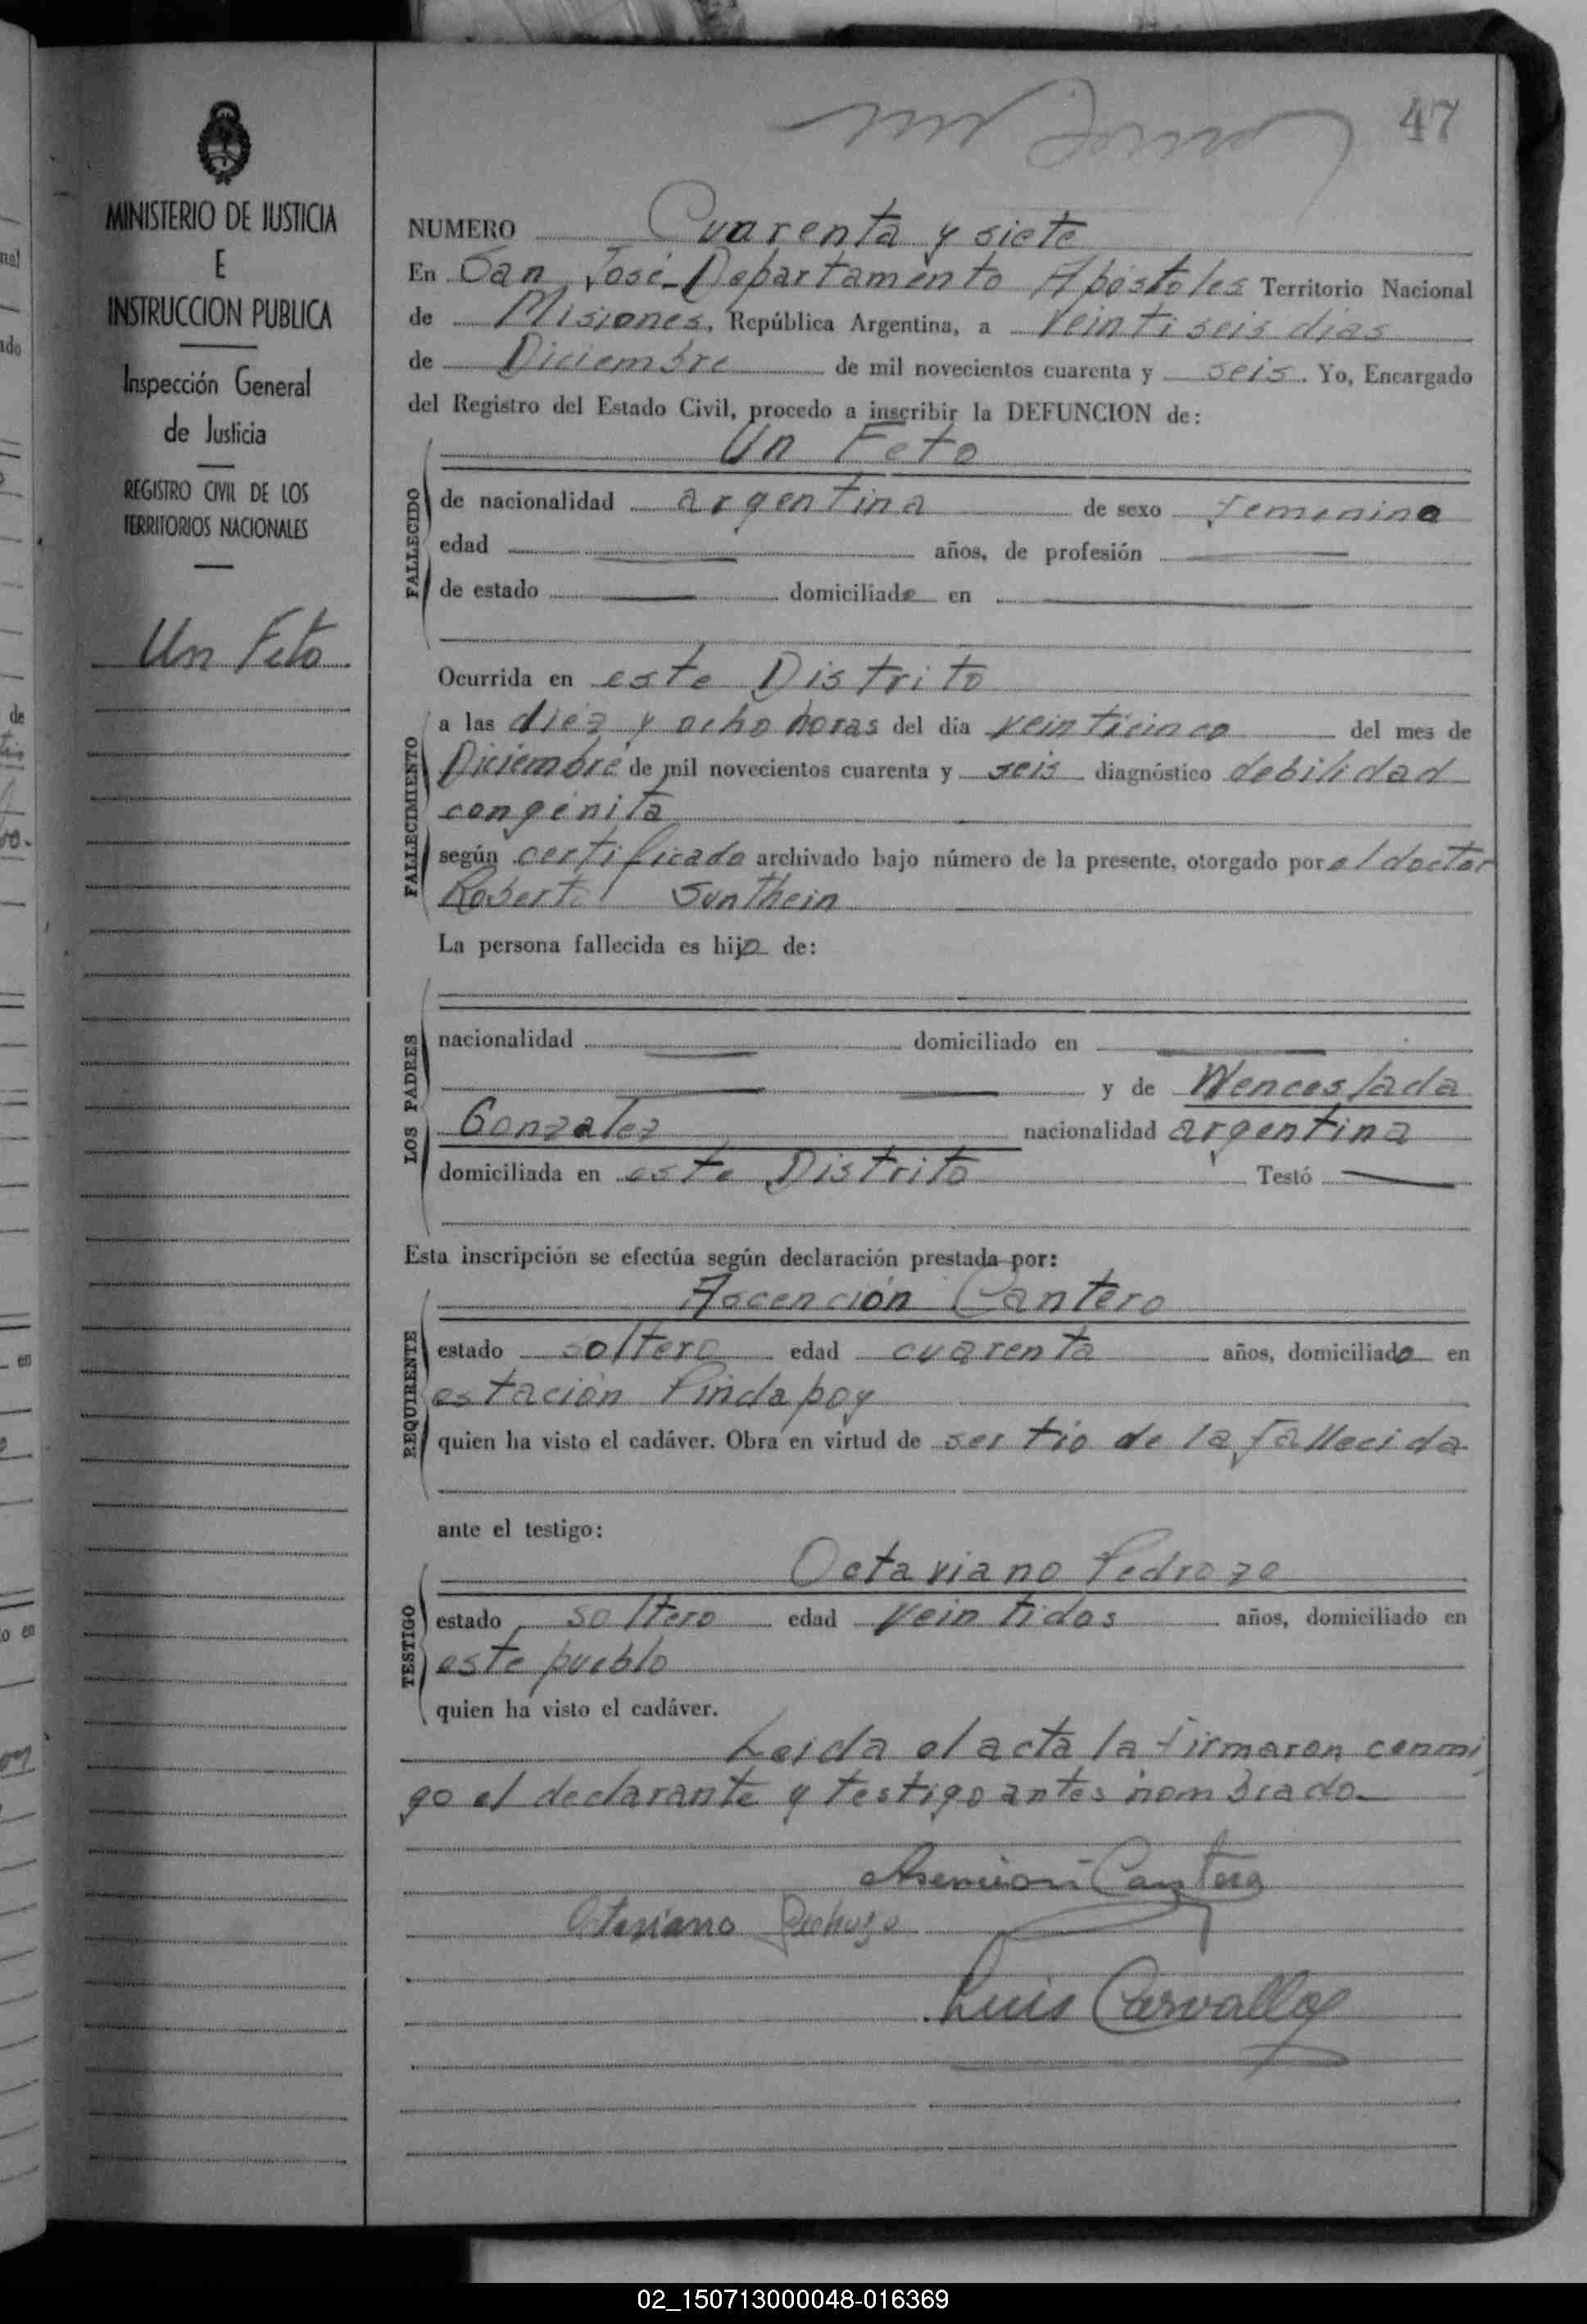 47
MINISTERIO DE JUSTICIA
E
INSTRUCCION PUBLICA
Inspección General
de Justicia
REGISTRO CIVIL DE LOS
TERRITORIOS NACIONALES
Un Feto
NUMERO Cuarenta y siete
En San José - Departamento Apóstoles Territorio Nacional
de Misiones, República Argentina, a veintiseis dias
de Diciembre de mil novecientos cuarenta y seis. Yo, Encargado
del Registro del Estado Civil, procedo a inscribir la DEFUNCION de:
Un Feto
FALLECIDO
de nacionalidad argentina de sexo femenino
edad años, de profesión
de estado domiciliade en
Ocurrida en este Distrito
FALLECIMIENTO
a las diez y ocho horas del día veinticinco del mes de
Diciembre de mil novecientos cuarenta y seis diagnóstico debilidad
congénita
según certificado archivado bajo número de la presente, otorgado por el doctor
Roberto Sunthein
La persona fallecida es hijo de:
LOS PADRES
nacionalidad domiciliado en
y de Wenceslada
Gonzalez nacionalidad argentina
domiciliada en este Distrito Testó
Esta inscripción se efectúa según declaración prestada por:
Ascención Cantero
REQUIRENTE
estado soltero edad cuarenta años, domiciliado en
estación Pindapoy
quien ha visto el cadáver. Obra en virtud de ser tio de la fallecida
ante el testigo:
Octaviano Pedrozo
TESTIGO
estado soltero edad veintidos años, domiciliado en
este pueblo
quien ha visto el cadáver.
Leida el acta la firmaron conmi
go el declarante y testigo antes nombrado.
Asencion Cantero
Octaviano Pedrozo
Luis Carvallo
02_150713000048-016369